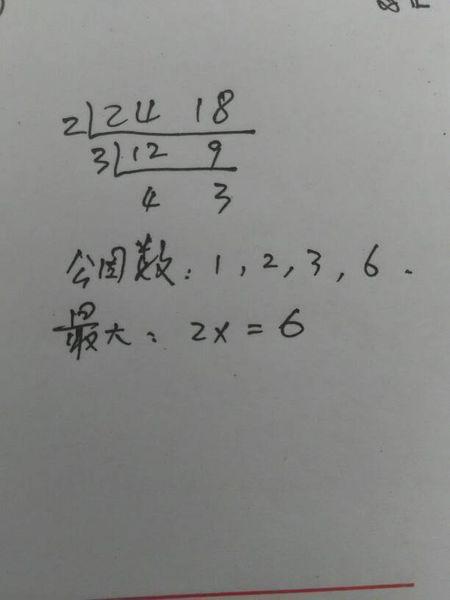 2 24 18
3 12 9
4 3
公因数：1，2，3，6．
最大：2x=6